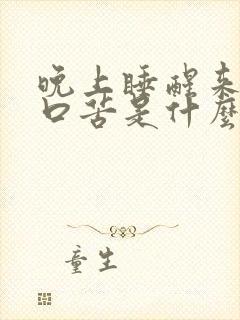 晚上睡醒来
口苦是什麼
童生